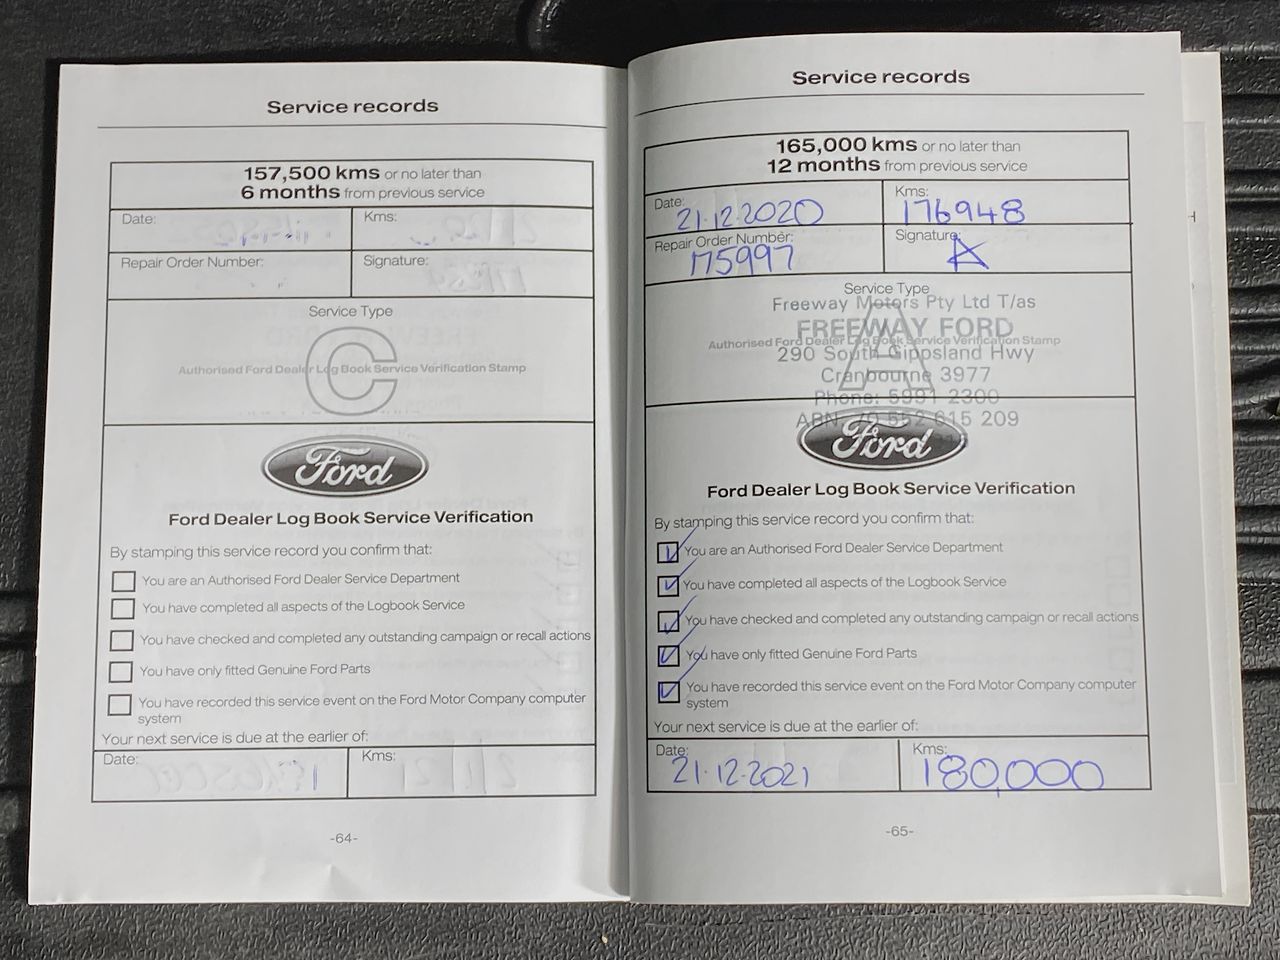 Service records
157,500 kms or no later than
6 months from previous service
Date:
Kms:
Repair Order Number:
Signature:
Service Type
C
Authorised Ford Dealer Log Book Service Verification Stamp
Ford
Ford Dealer Log Book Service Verification
By stamping this service record you confirm that:
You are an Authorised Ford Dealer Service Department
You have completed all aspects of the Logbook Service
You have checked and completed any outstanding campaign or recall actions
You have only fitted Genuine Ford Parts
You have recorded this service event on the Ford Motor Company computer
system
Your next service is due at the earlier of:
Date:
Kms:
-64-
Service records
165,000 kms or no later than
12 months from previous service
Date: 21.12.2020
Kms: 176948
Repair Order Number: 175997
Signature:
Service Type
A
Freeway Motors Pty Ltd T/as
FREEWAY FORD
Authorised Ford Dealer Log Book Service Verification Stamp
290 South Gippsland Hwy
Cranbourne 3977
Phone: 5991 2300
ABN 552 615 209
Ford
Ford Dealer Log Book Service Verification
By stamping this service record you confirm that:
You are an Authorised Ford Dealer Service Department
You have completed all aspects of the Logbook Service
You have checked and completed any outstanding campaign or recall actions
You have only fitted Genuine Ford Parts
You have recorded this service event on the Ford Motor Company computer
system
Your next service is due at the earlier of:
Date: 21.12.2021
Kms: 180,000
-65-
H